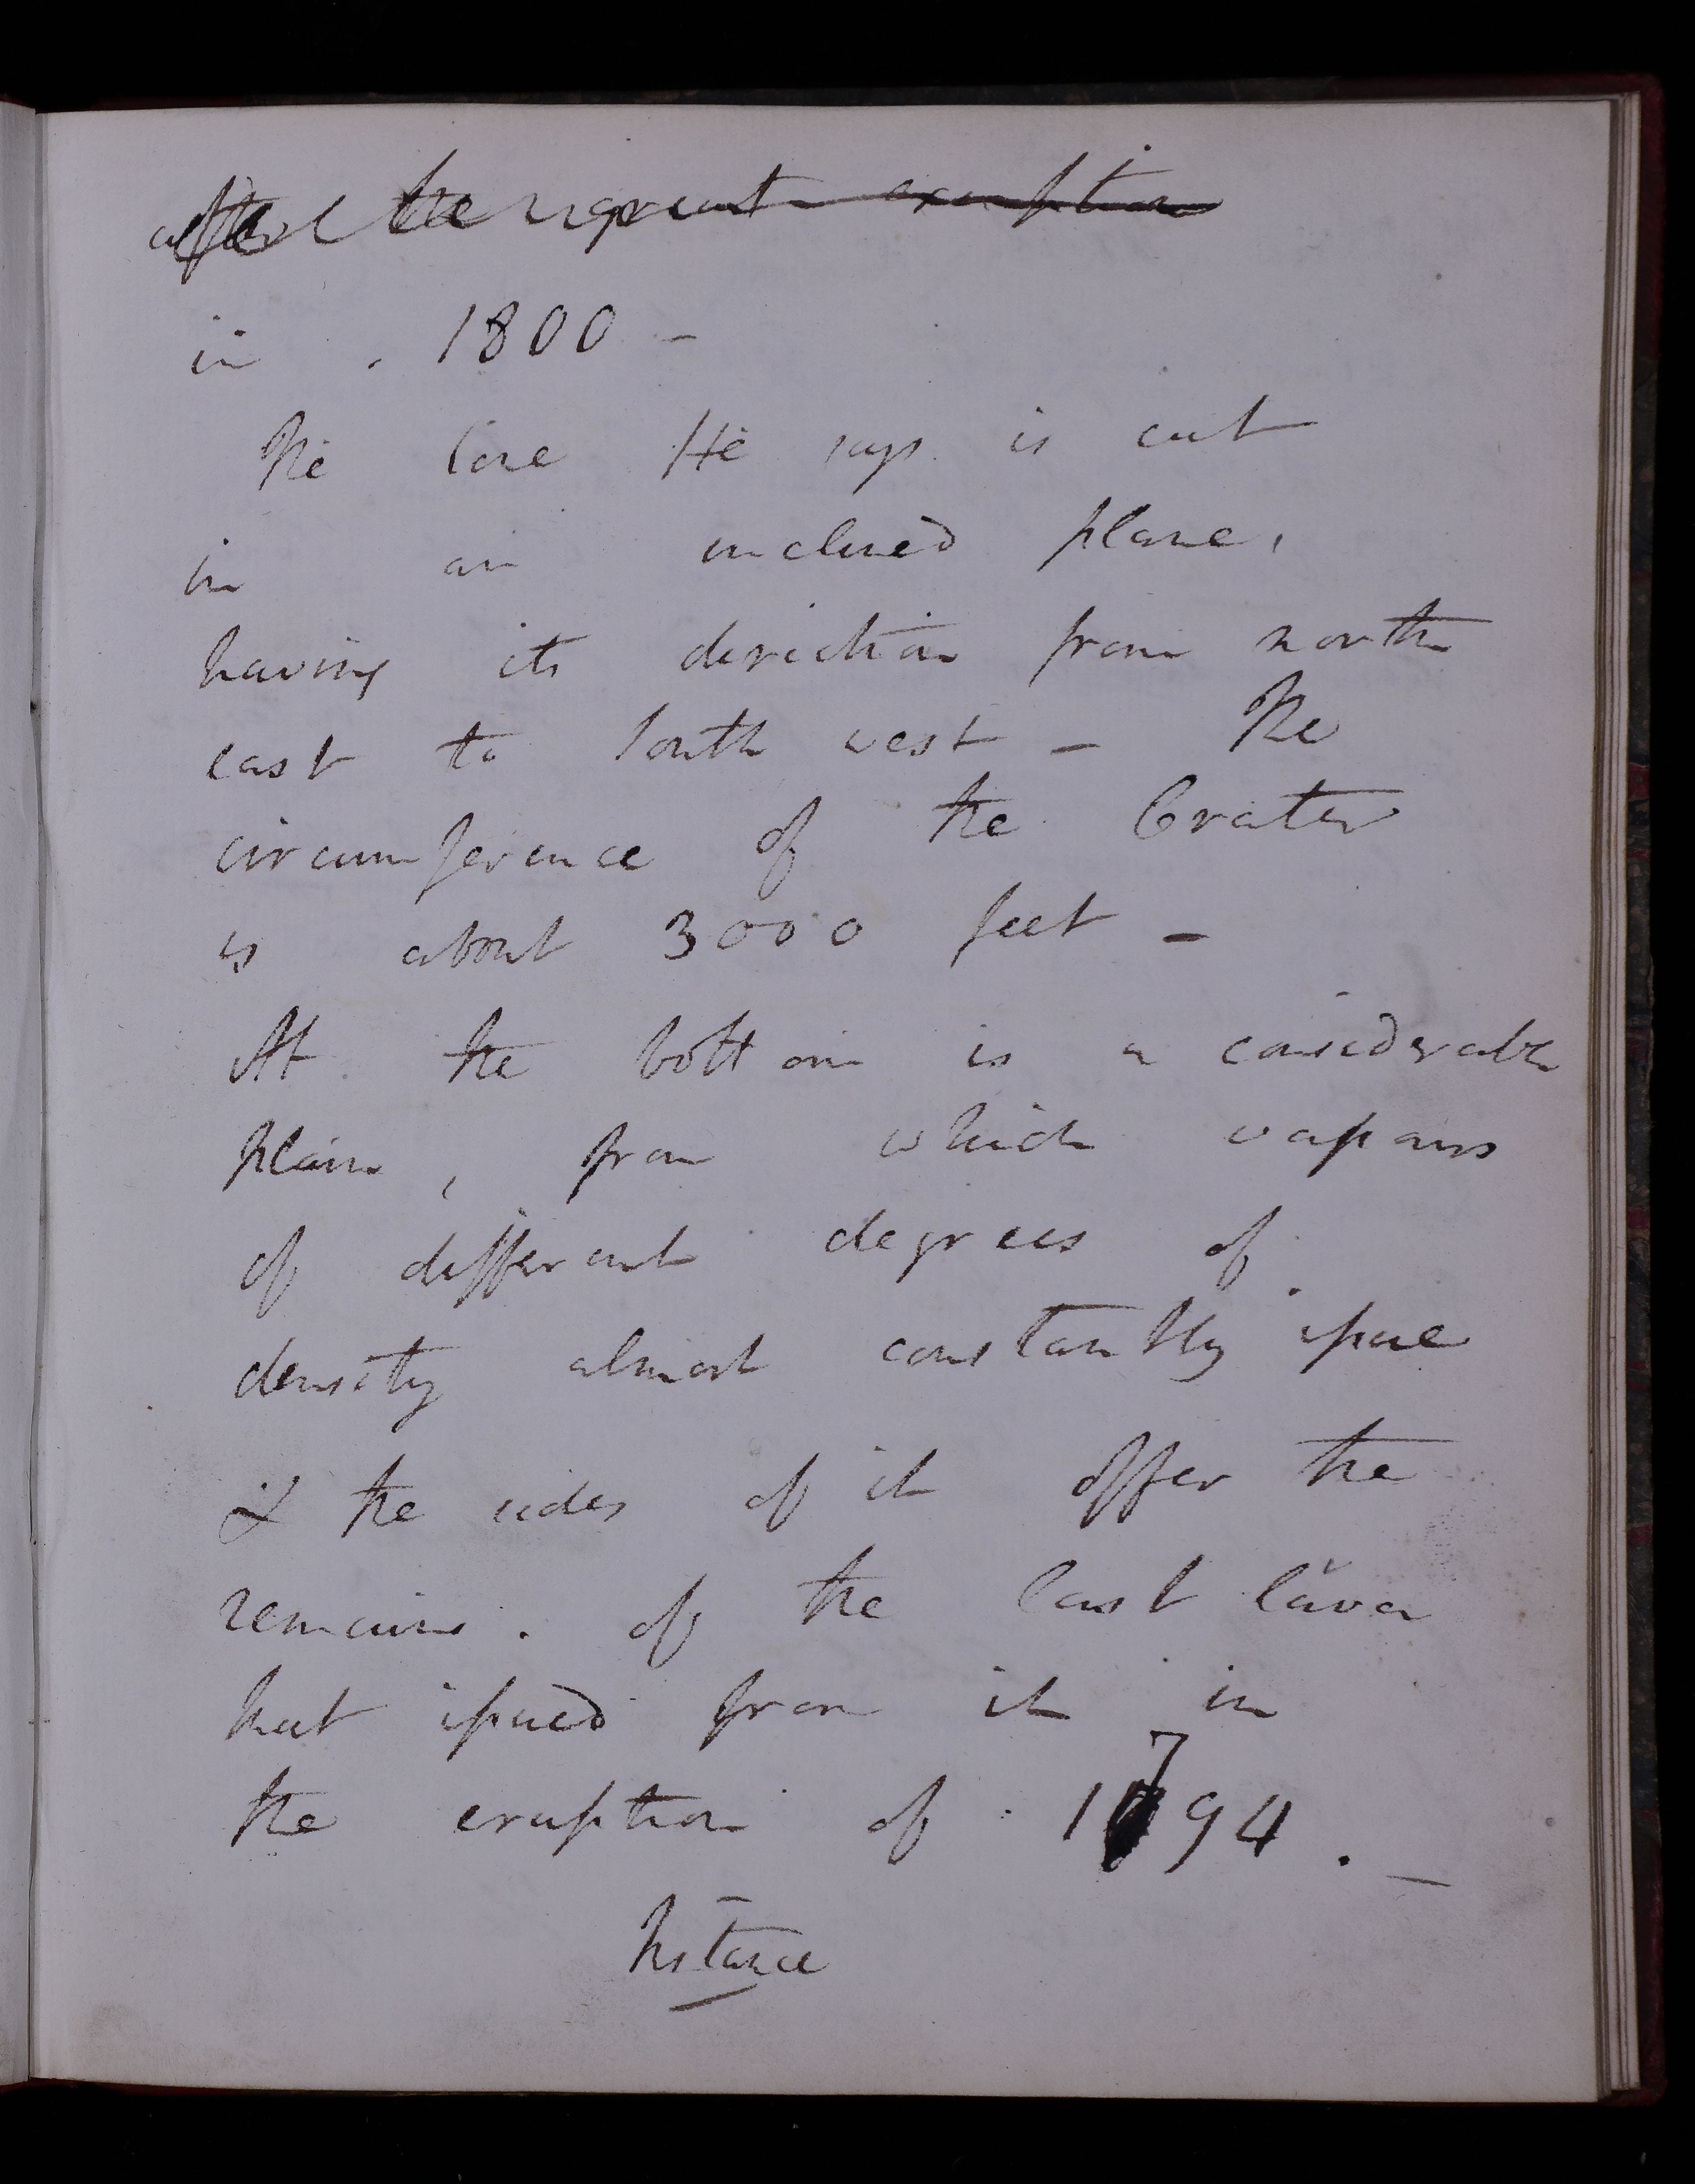 after the great eruption
in . 1800 -
The Cone He says is cut
in an inclined plane,
having its direction from north
east to South west - The
circumference of the Crater
is about 3000 feet -
At the bottom is a considerable
plain, from which vapours
of different degrees of
density almost constantly issue
& the sides of it offer the
remains . of the last lava
that issued from it in
the eruption of 1794 . _
Instance